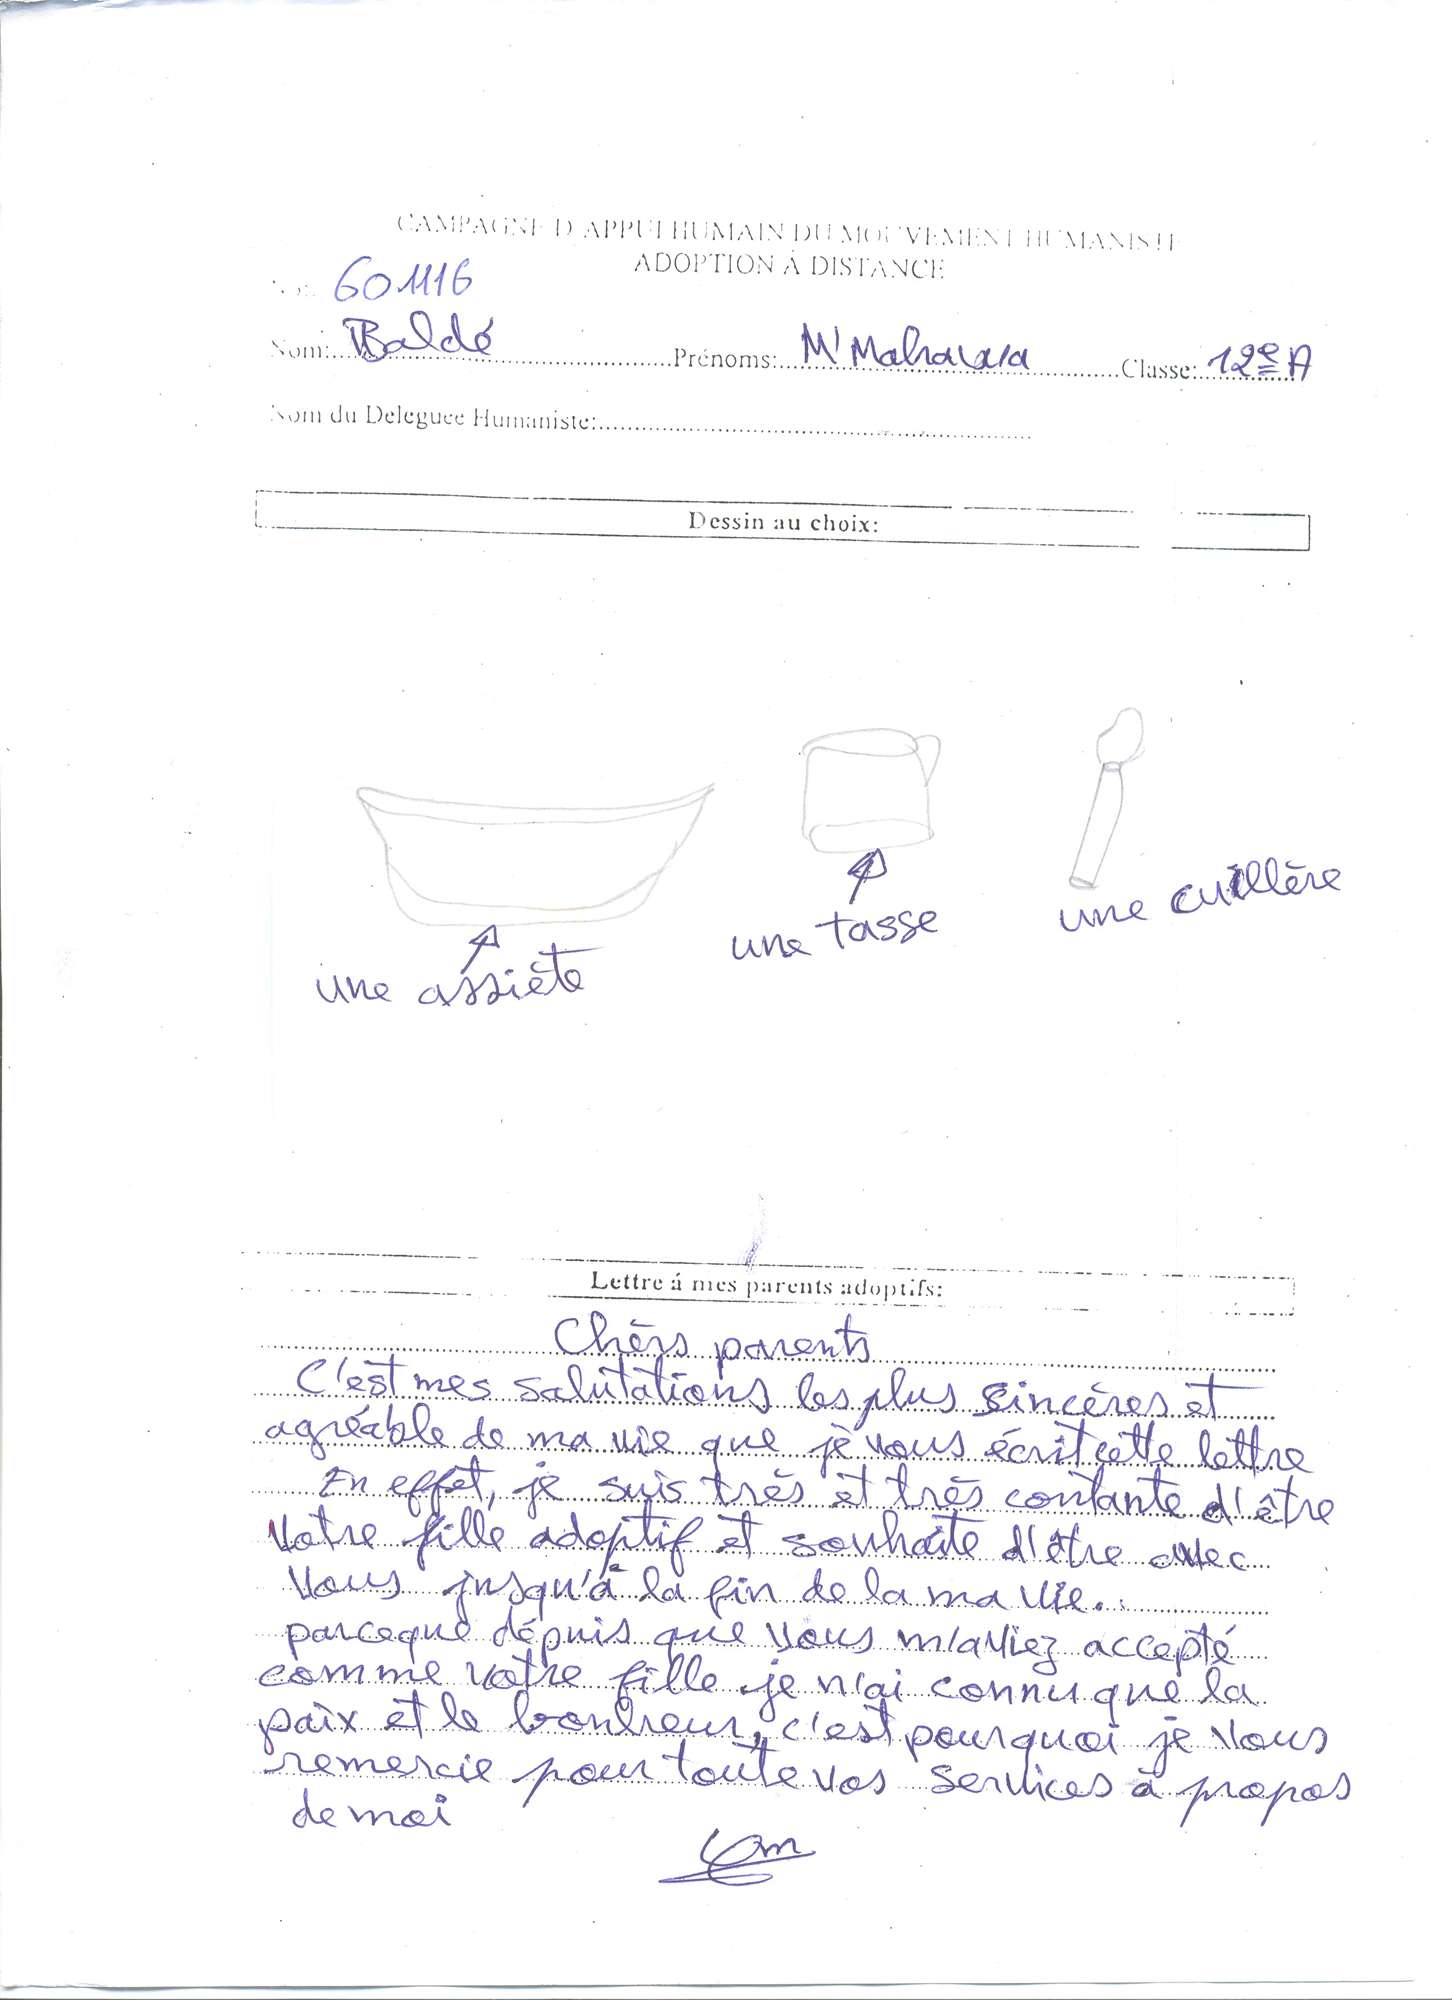 CAMPAGNE D'APPUI HUMAIN DU MOUVEMENT HUMANISTE
ADOPTION À DISTANCE
601116
Nom: Baldé Prénoms: M'Mahawa Classe: 12e A
Nom du Deleguee Humaniste:
Dessin au choix:
une assiète
une tasse
une cuillère
Lettre á mes parents adoptifs:
Chèrs parents
C'est mes salutations les plus sincères et
agréable de ma vie que je vous écrit cette lettre
En effet, je suis très et très contante d'être
votre fille adoptif et souhaite d'être avec
vous jusqu'à la fin de la ma vie.
parceque dépuis que vous m'aviez accepté
comme votre fille je n'ai connu que la
paix et le bonheur, c'est pourquoi je vous
remercie pour toute vos services à propos
de moi